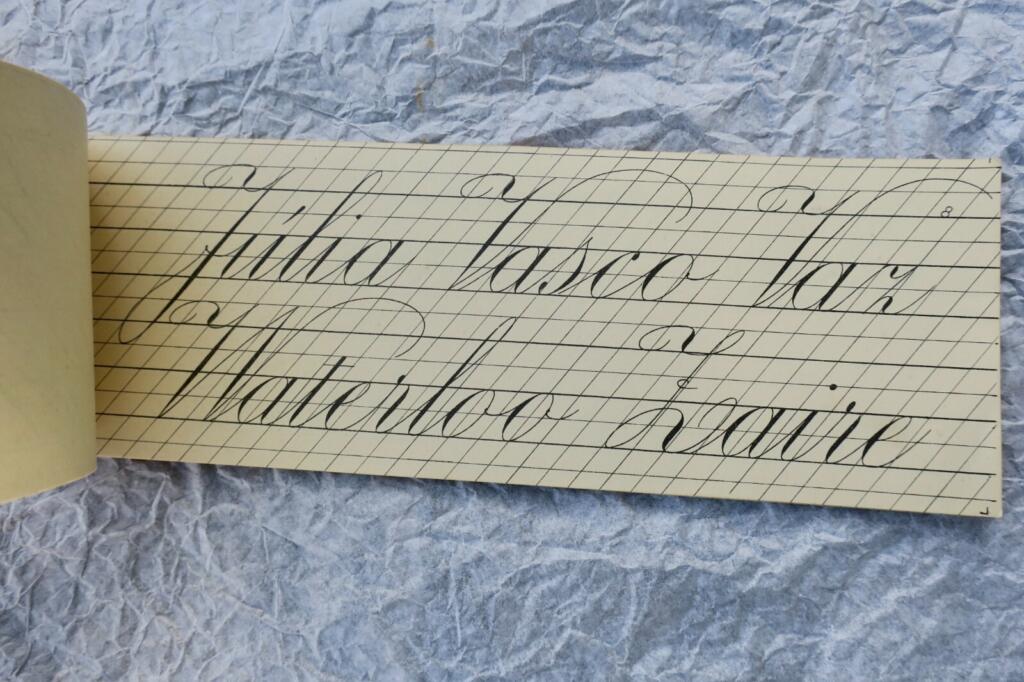 Júlia Vasco Vaz
Waterloo Zaire
8